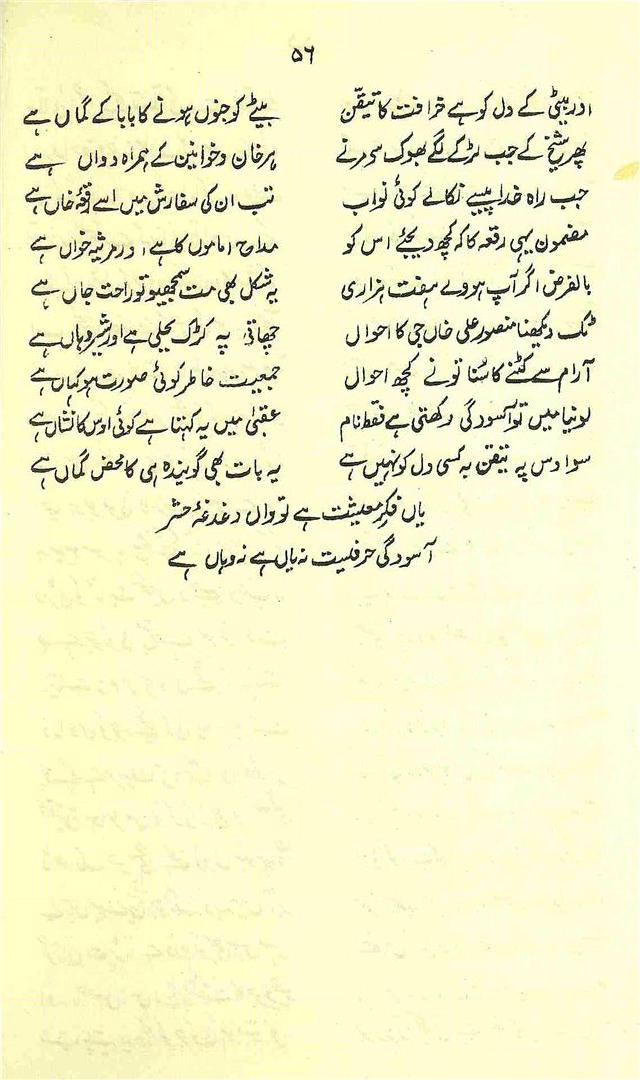 ۵۶
اور بیٹی کے دل کو ہے خرافت کا تیقّن بیٹے کو جنوں ہونے کا بابا کے گماں ہے
پھر شیخ کے جب لڑکے لگے بھوک سو مرنے ہر خان و خوانین کے ہمراہ دواں ہے
جب راہ خدا پیسے نکالے کوئی نواب تب ان کی سفارش میں اسے رقعۂ خاں ہے
مضمون یہی رقعہ کا کہ کچھ دیجئے اس کو مداح اماموں کا ہے اور مرثیہ خواں ہے
بالفرض اگر آپ ہووے ہفت ہزاری یہ شکل بھی مت سمجھیو تو راحت جاں ہے
ٹک دیکھنا منصور علی خاں جی کا احوال چھاتی پہ کڑک بجلی ہے اور شیر دہاں ہے
آرام سے کٹنے کا سُنا تونے کچھ احوال جمعیت خاطر کوئی صورت ہو کہاں ہے
دنیا میں تو آسودگی رکھتی ہے فقط نام عقبیٰ میں یہ کہتا ہے کوئی اوس کا نشاں ہے
سو اوس پہ تیقن یہ کسی دل کو نہیں ہے یہ بات بھی گویندہ ہی کا محض گماں ہے
یاں فکرِ معیشت ہے تو واں دغدغۂ حشر
آسودگی حرفیست نہ یاں ہے نہ وہاں ہے